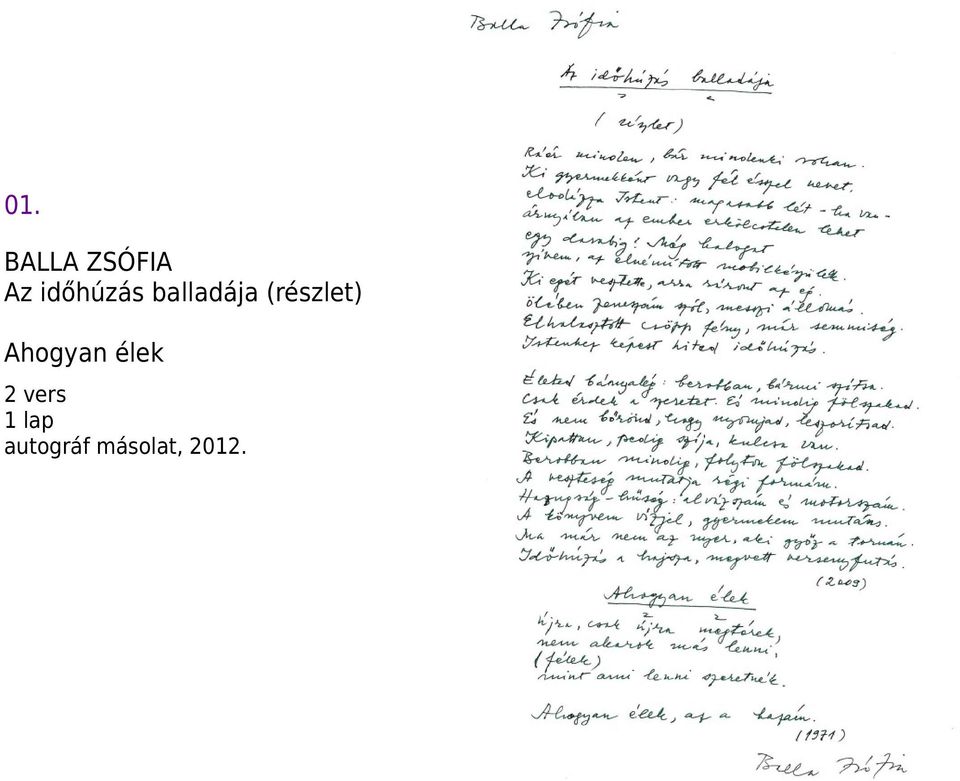 01.
BALLA ZSÓFIA
Az időhúzás balladája (részlet)
Ahogyan élek
2 vers
1 lap
autográf másolat, 2012.
Balla Zsófia
Az időhúzás balladája
(részlet)
Ráér minden, bár mindenki rohan.
Ki gyermekként vagy fél ésszel nevet,
elodázza Istent: magasabb lét – ha van –
árnyában az ember erkölcstelen lehet
egy darabig! Még halogat
szívem, az elnémított mobilkészülék.
Ki eget vesztette, arra ráront az ég.
ölében zeneszám szól, messzi állomás.
Elhalasztott csöpp fény, már semmiség.
Istenhez képest hited időhúzás.
Életed bányalég: berobban, bármi szítsa.
Csak érdek a szeretet. És mindig fölszakad.
És nem bőrönd, hogy nyomjad, leszorítsad.
Kipattan, pedig szíja, kulcsa van.
Berobban mindig, folyton fölszakad.
A veszteség mutatja régi formám.
Hazugság – hűség: alvázszám és motorszám.
A könyvem vízjel, gyermekem mutáns.
Ma már nem az nyer, aki győz a tornán.
Időhúzás a hajsza, megvett versenyfutás.
(2009)
Ahogyan élek
újra, csak újra megtérek,
nem akarok más lenni,
(félek)
mint ami lenni szeretnék.
Ahogyan élek, az a hazám.
(1971)
Balla Zsófia